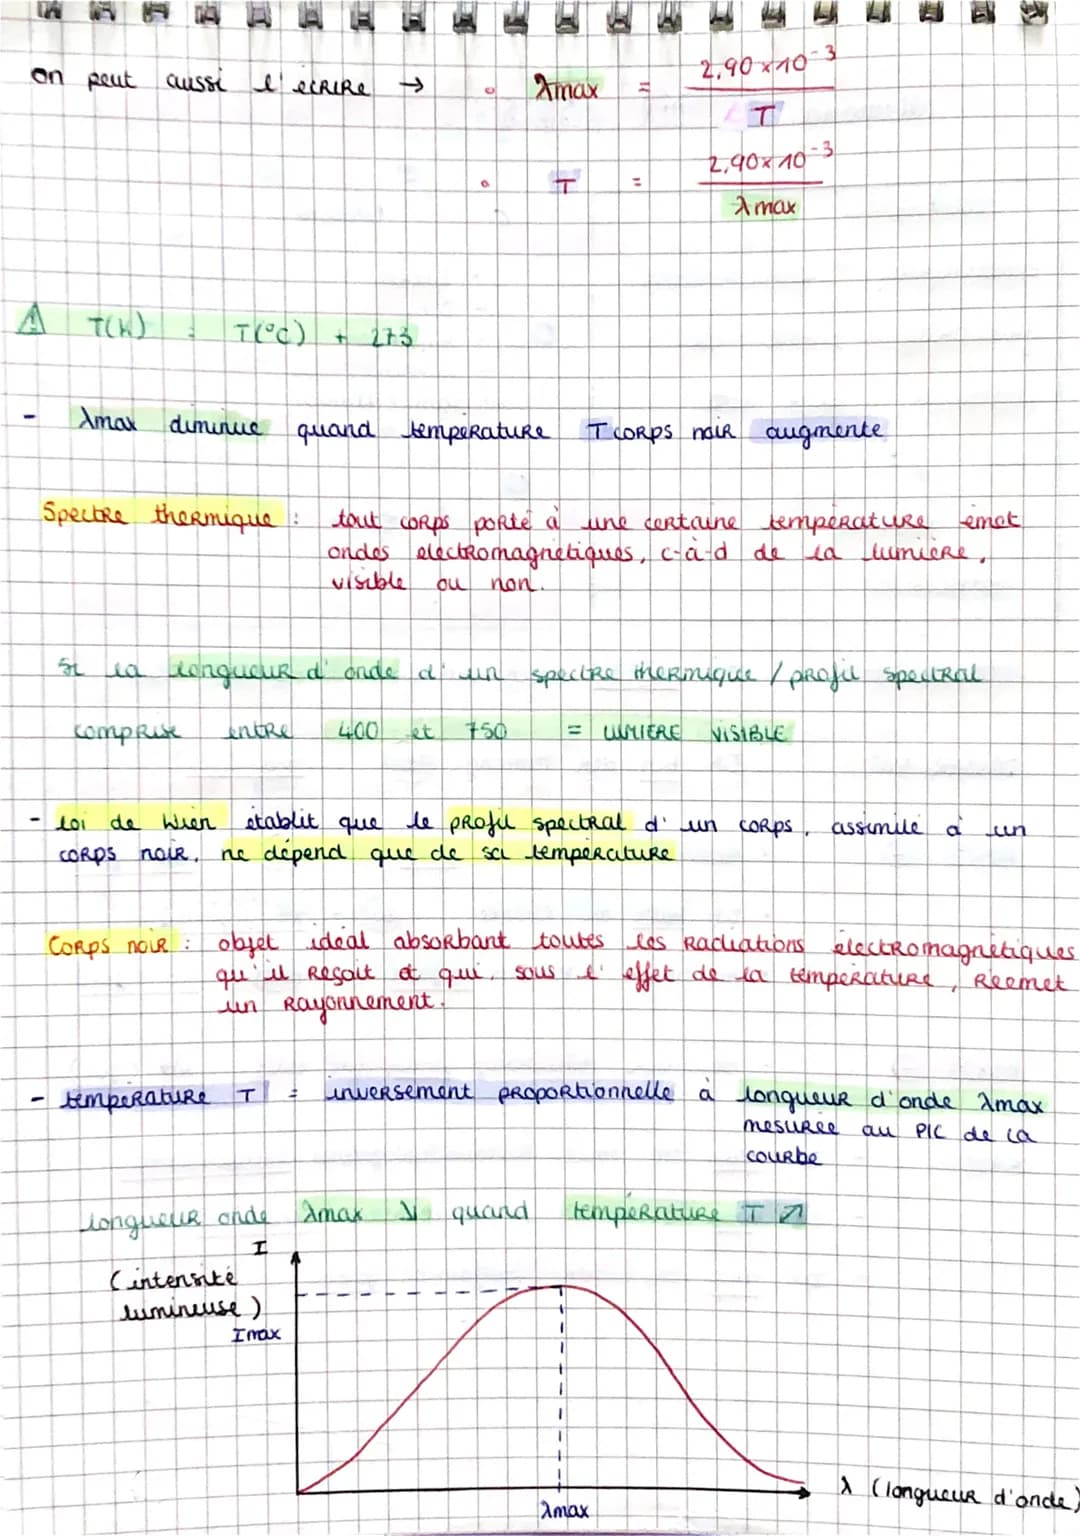 on peut aussi l'écrire → • λmax = 2,90 × 10⁻³ / T
• T = 2,90 × 10⁻³ / λmax
⚠ T(K) = T(°C) + 273
- λmax diminue quand température T corps noir augmente
Spectre thermique : tout corps porté à une certaine température émet
ondes électromagnétiques, c-à-d de la lumière,
visible ou non.
Si la longueur d'onde d'un spectre thermique / profil spectral
comprise entre 400 et 750 = LUMIÈRE VISIBLE
- loi de Wien établit que le profil spectral d'un corps, assimilé à un
corps noir, ne dépend que de sa température
Corps noir : objet idéal absorbant toutes les radiations électromagnétiques
qu'il reçoit et qui, sous l'effet de la température, réemet
un rayonnement.
- température T = inversement proportionnelle à longueur d'onde λmax
mesurée au PIC de la
courbe
longueur onde λmax ↘ quand température T ↗
I
(intensité
lumineuse)
Imax
λ (longueur d'onde)
λmax